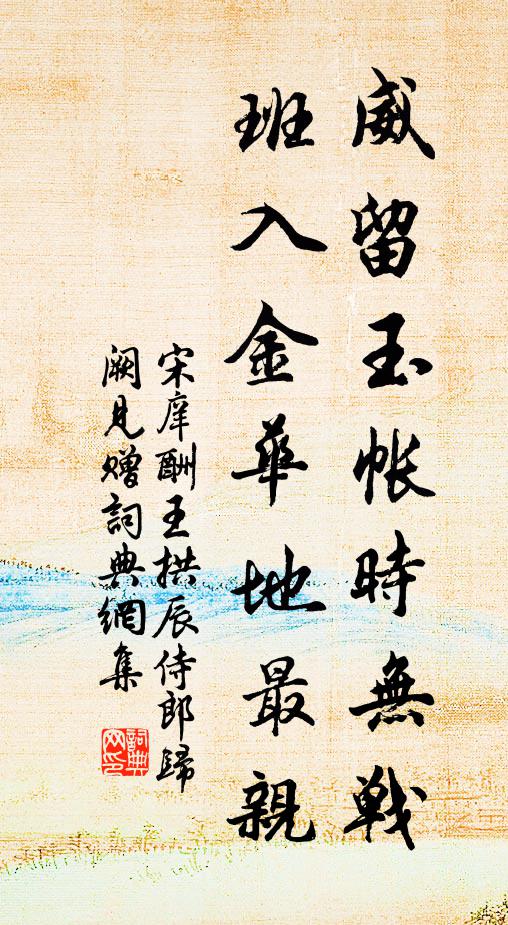 威留玉帳時無戰
班入金華地最親
宋庠酬王拱辰侍郎歸
闕見贈詞典網集
詞典
网印